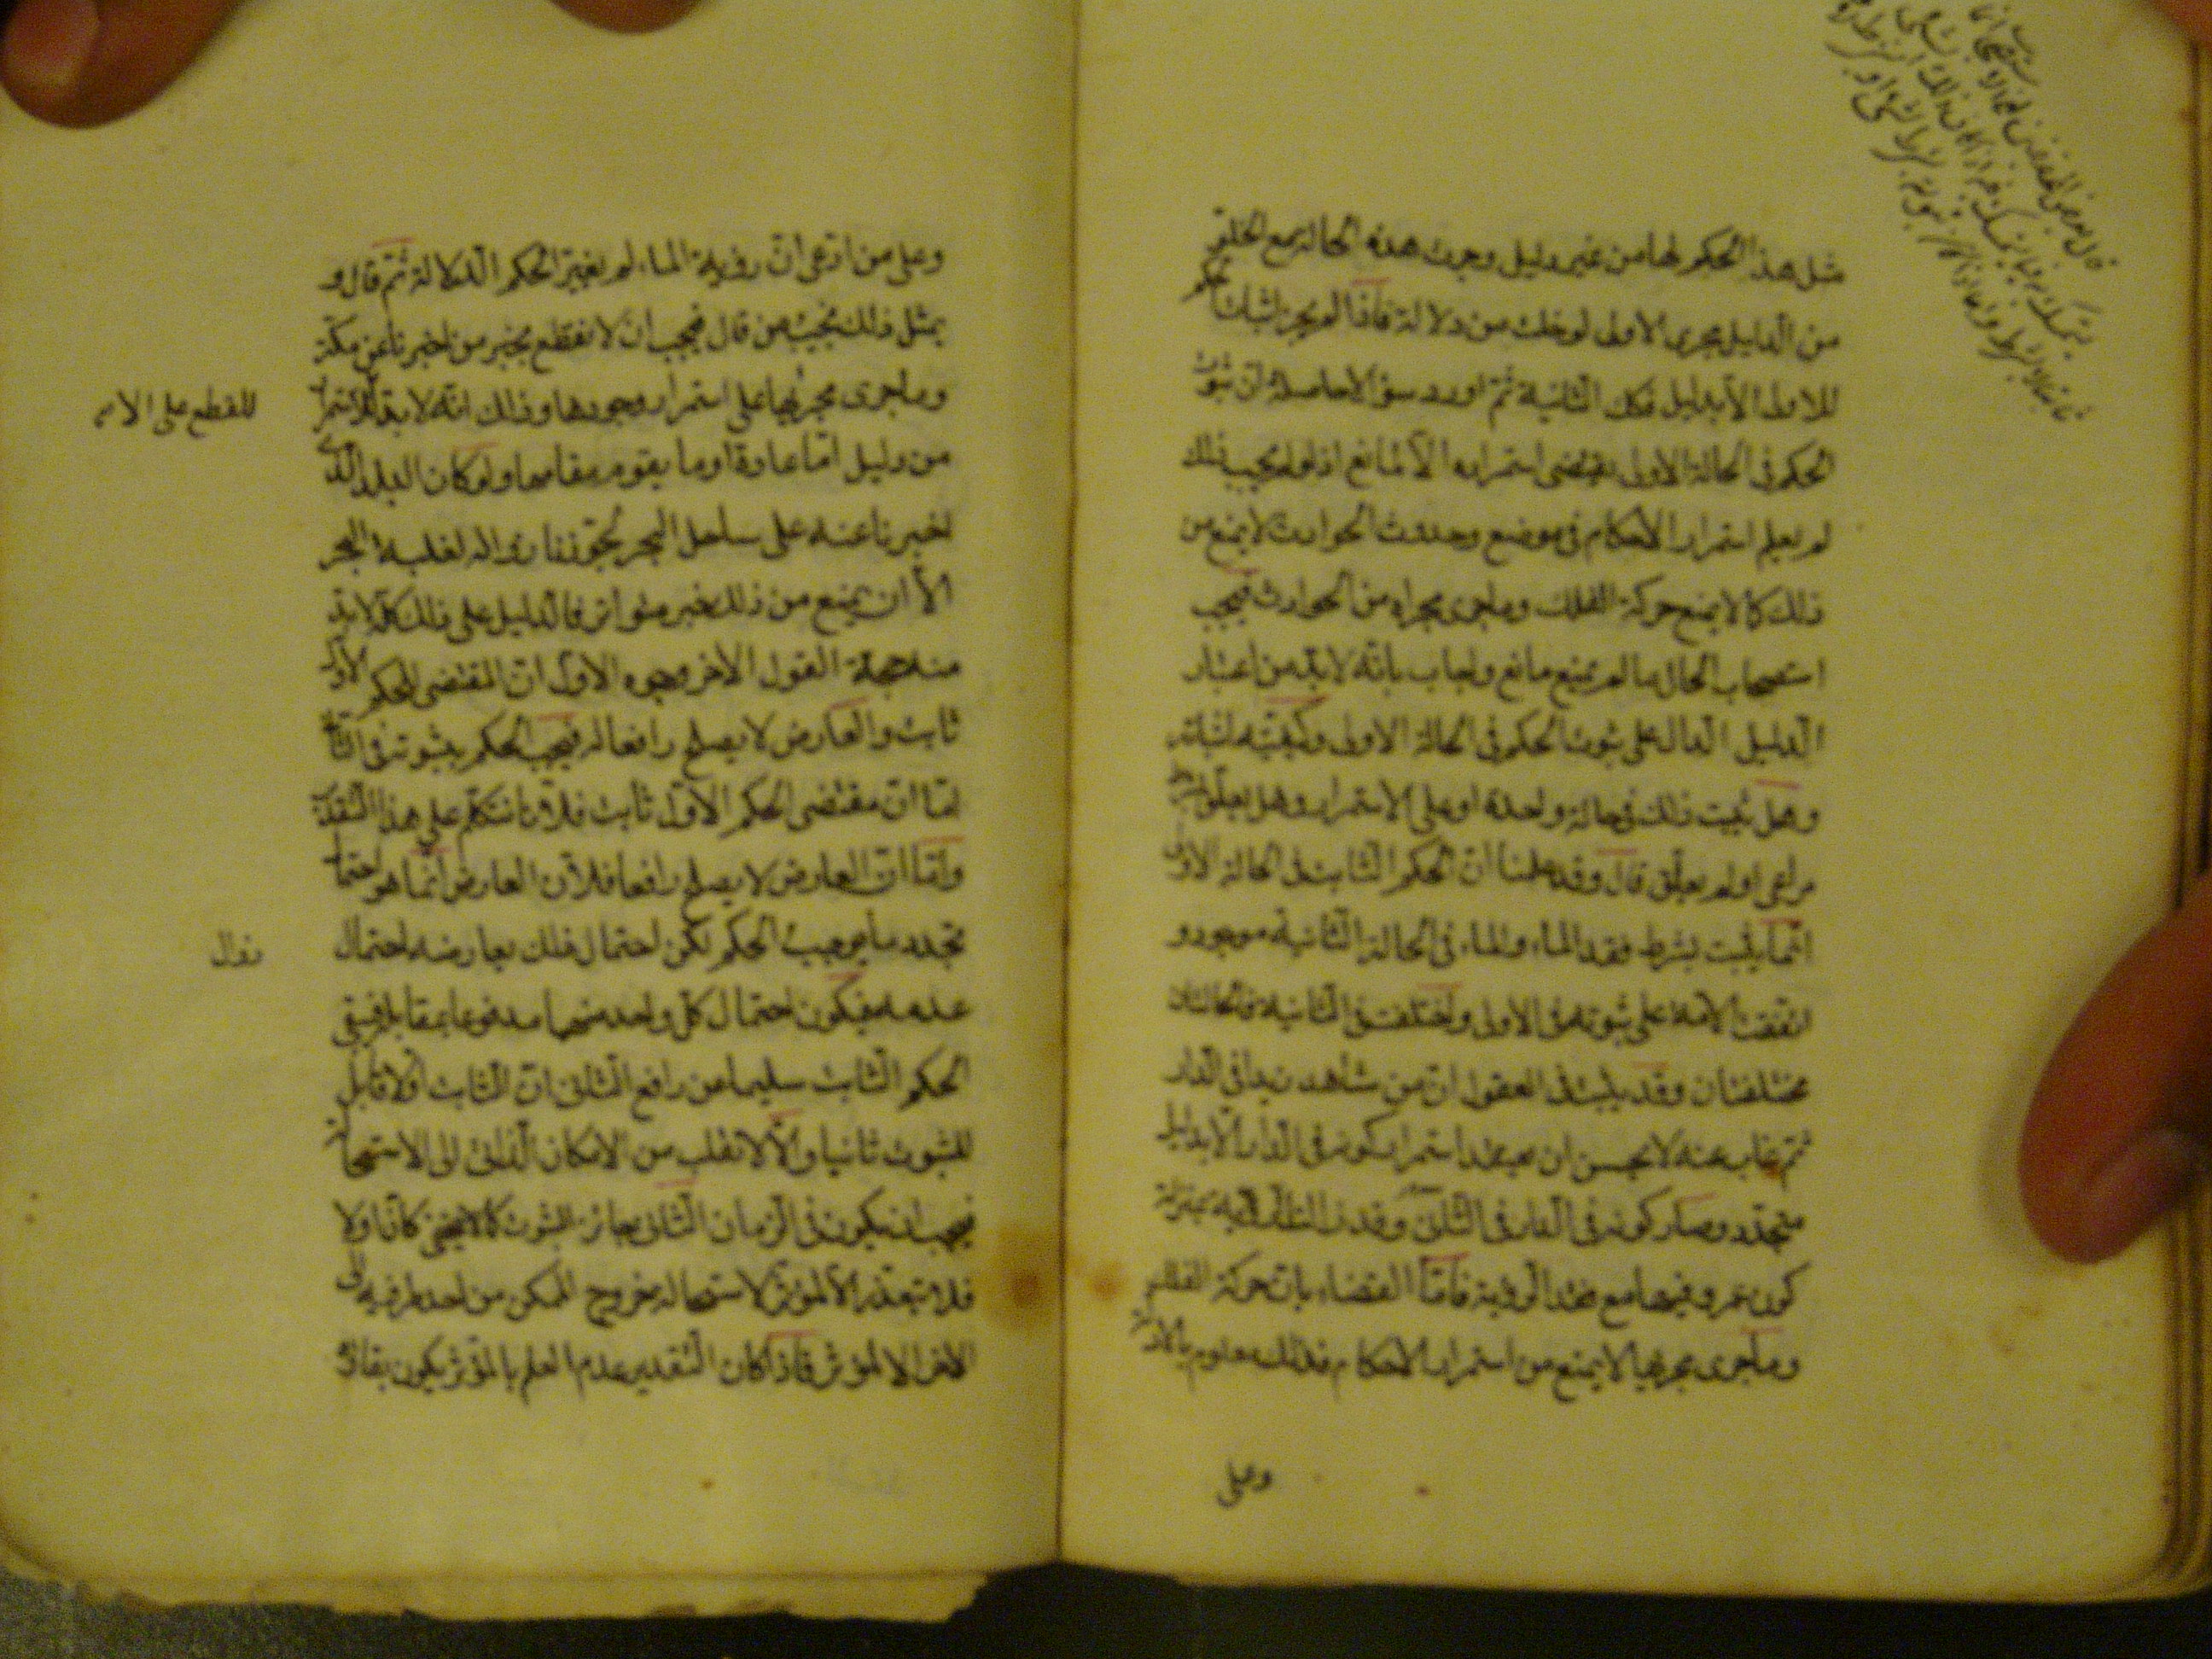 مثل هذا الحكم لها من غير دليل وجرت هذه الحالة مع الخلو
من الدليل مجرى الاولى لو خلت من دلالة فاذا لم يجز اثبات حكم
للاولى الا بدليل فكك الثانية ثم اورد سؤالا حاصله ان ثبوت
الحكم في الحالة الاولى يقتضى استمراره الا لمانع اذ لو لم يجب ذلك
لم يعلم استمرار الاحكام في موضع وحدوث الحوادث لا يمنع من
ذلك كما لا يمنع حركة الفلك وما جرى مجراه من الحوادث فيجب
استصحاب الحال ما لم يمنع مانع واجاب بانه لا بد من اعتبار
الدليل الدال على ثبوت الحكم في الحالة الاولى وكيفية اثباته
وهل يثبت ذلك في حالة واحدة او على الاستمرار وهل يعلق بشرط
مراعى او لم يعلق قال وقد علمنا ان الحكم الثابت في الحالة الاولى
انما يثبت بشرط فقد الماء والماء في الحالة الثانية موجود و
اتفقت الامة على ثبوته في الاولى واختلفت في الثانية فالحالتان
مختلفتان وقد يثبت في العقول ان من شاهد زيدا في الدار
ثم غاب عنه لا يحسن ان يعتقد استمرار كونه في الدار الا بدليل
متجدد وصار كونه في الدار في الثاني وقد زالت الرؤية بمنزلة
كون عمرو فيها مع فقد الرؤية فاما القضاء بان حركة الفلك
وما جرى مجريها لا يمنع من استمرار الاحكام فذلك معلوم بالادلة
وعلى
وعلى من ادعى ان رؤية الماء لم يغير الحكم الدلالة ثم قال و
بمثل ذلك نجيب من قال فيجب ان لا نقطع بخبر من اخبرنا عن مكة
وما جرى مجريها على استمرار وجودها وذلك انه لا بد للاستمرار
للقطع على الاستمرار
من دليل اما عادة او ما يقوم مقامها ولو كان البلد الذي
اخبرنا عنه على ساحل البحر لجوزنا زواله لغلبة البحر
الا ان يمنع من ذلك خبر متواتر فالدليل على ذلك كله لا بد
منه حجة القول الاخر وجوه الاول ان المقتضى للحكم الاول
ثابت والعارض لا يصلح رافعا له فيجب الحكم بثبوته في الثاني
اما ان مقتضى الحكم الاول ثابت فلانا نتكلم على هذا التقدير
واما ان العارض لا يصلح رافعا فلان العارض انما هو احتمال
تجدد ما يوجب الحكم لكن احتمال ذلك يعارضه احتمال
زوال
عدمه فيكون احتمال كل واحد منهما مدفوعا بمقابله فيبقى
الحكم الثابت سليما من رافع الثاني ان الثابت اولا قابل
للثبوت ثانيا والا لانقلب من الامكان الذاتي الى الاستحالة
فيجب ان يكون في الزمان الثاني جائز الثبوت كما لا يخفى كان اولا
فلا ينعدم الا لمؤثر لاستحالة خروج الممكن من احد طرفيه الى
الاخر الا لمؤثر فاذا كان التقدير عدم العلم بالمؤثر يكون بقاؤه